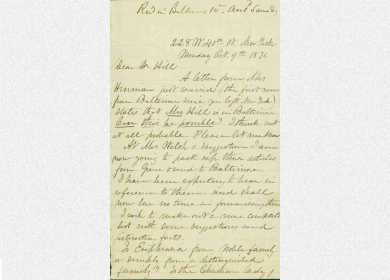 Rec'd in Baltimore 10th
228 W 40th St. New York
Monday Oct. 9th 187
Dear Mr Hill
A letter from Mrs
Herriman just received (the first news
from Baltimore since you left New York)
states that Mrs Hill is in Baltimore
Can this be possible? I think not
at all probable. Please let me know
At Mrs Welsh's suggestion I am
now going to pack up those articles
from Grace & send to Baltimore.
I have been expecting to hear in
reference to them and shall
now lose no time in forwarding them
I wish to make out a more complete
list with some suggestions and
instructive facts.
Is Euphrasia from noble family
or simply from a distinguished
family? Is the Christian lady,